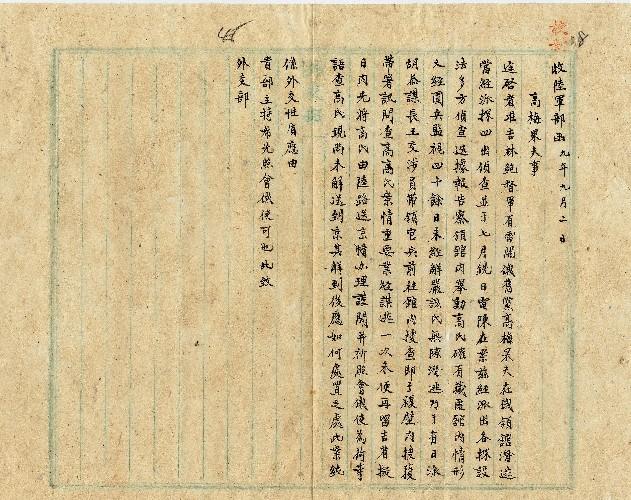 收陸軍部函 九年九月二日
高梅果夫事
逕啓者准吉林鮑督軍有電開俄舊黨高梅果夫在俄領館潛匿
當經派探四出偵查並于七月銑日電陳在案茲經派出各探設
法多方偵查迭據報告察領館內舉動高氏確有藏匿館內情形
又經團兵監視四十餘日未經解嚴該氏無隙潛逃乃于有日派
胡參謀長王交涉員帶領官兵前往館內搜查即于複壁內搜獲
帶署訊問查高高氏案情重要業經謀逃一次未便再留吉省擬
日內先將高氏由陸路送京歸办理并祈照會俄使為荷等
語查高氏現尚未解送到京其解到後應如何處置之處此案純
係外交性質應由
貴部主持希先照會俄使可也此致
外交部